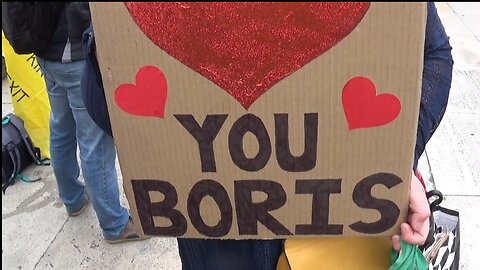 YOU
BORIS
XIT